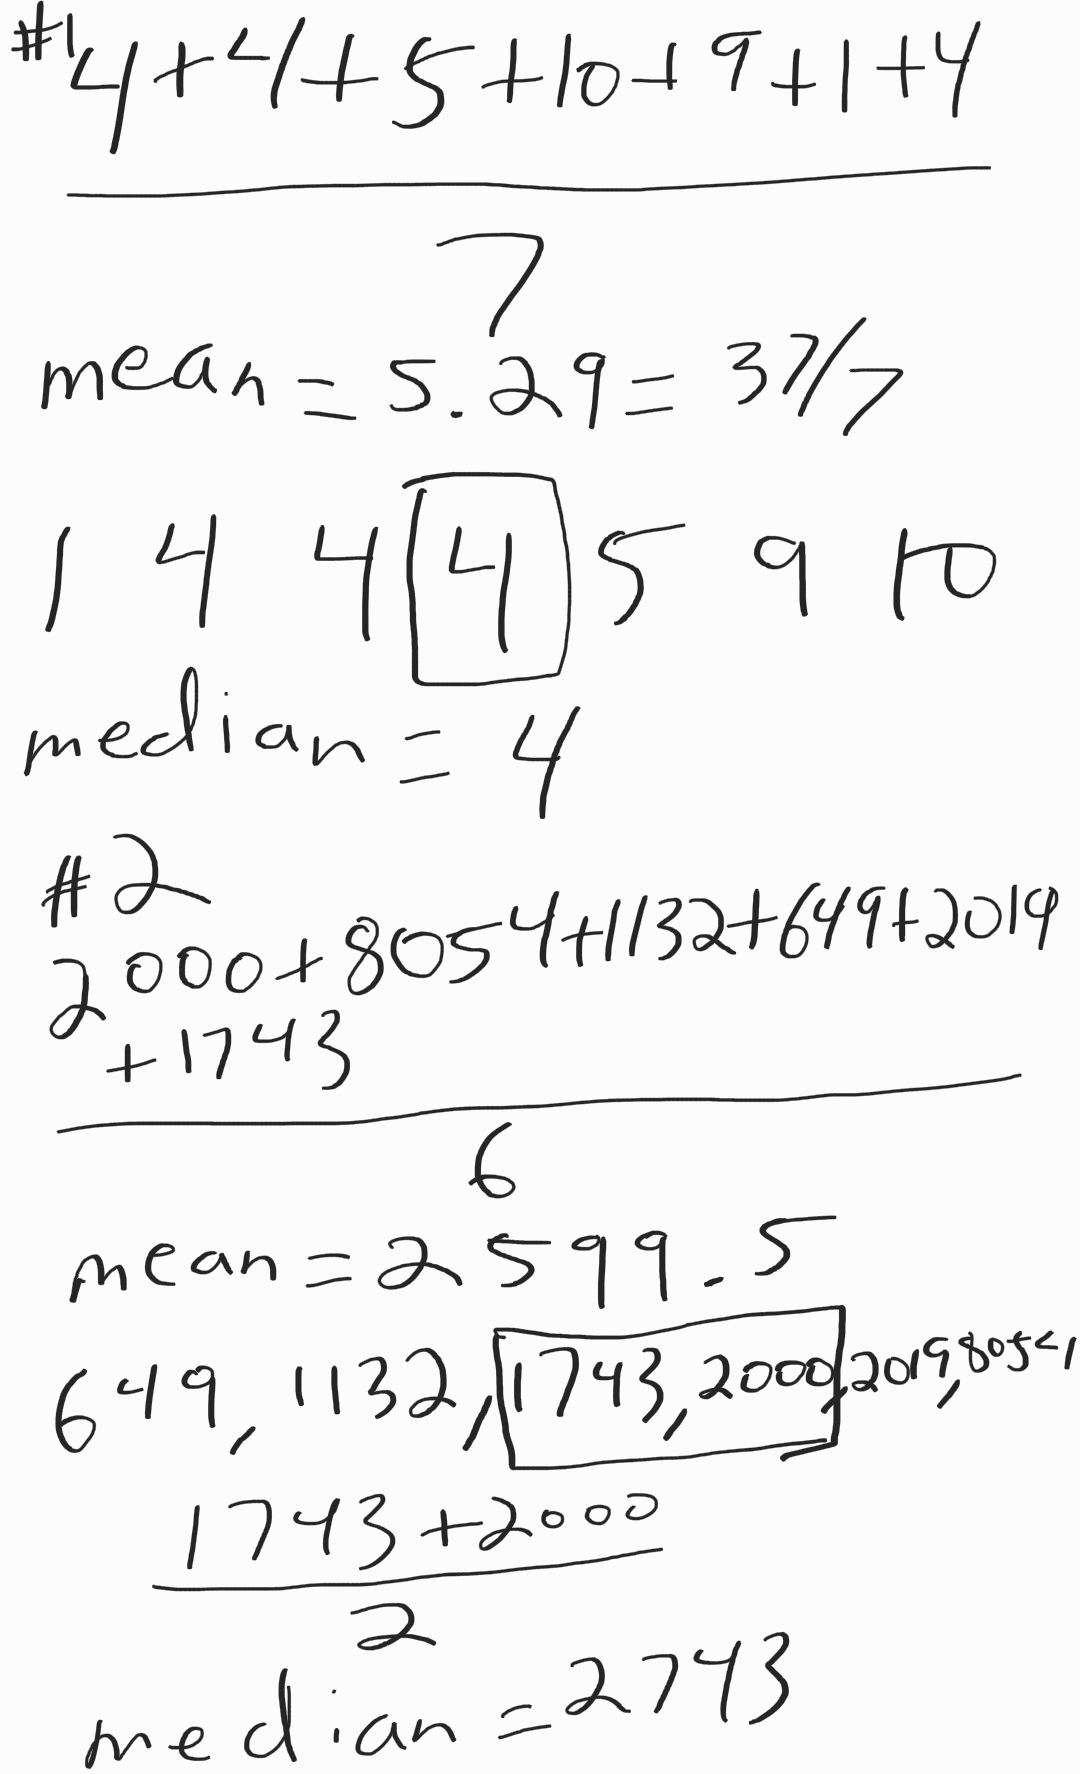 #1
4+4+5+10+9+1+4
7
mean = 5.29 = 37/7
1 4 4 4 5 9 10
median = 4
#2
2000+8054+1132+649+2019
+1743
6
mean = 2599.5
649, 1132, 1743, 2000, 2019, 8054
1743+2000
2
median = 2743